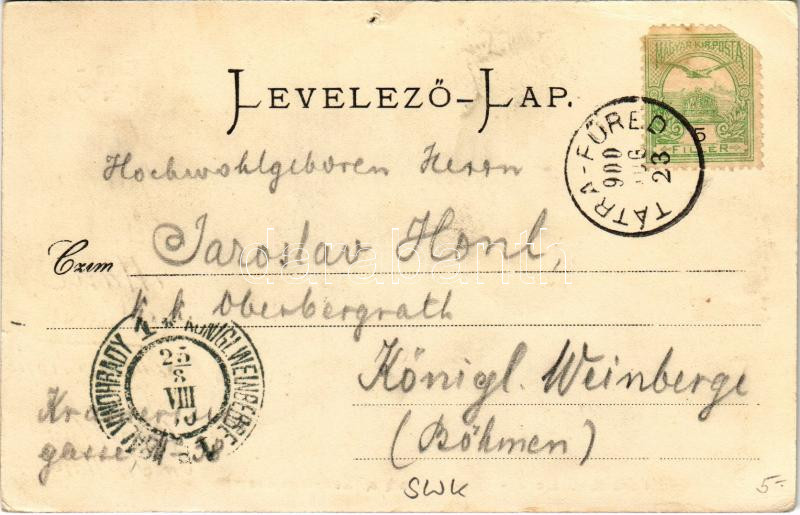 MAGYAR KIR. POSTA
5
FILLÉR
LEVELEZŐ-LAP.
TÁTRA-FÜRED
900
AUG
23
Hochwohlgeboren Herrn
Czim Jaroslav Honl,
k. k. Oberbergrath
KÖNIGL. WEINBERGE 1
KRÁL. VINOHRADY 1
25
8
VIII
Königl. Weinberge
gasse,
(Böhmen)
SWK
5-
darabanth